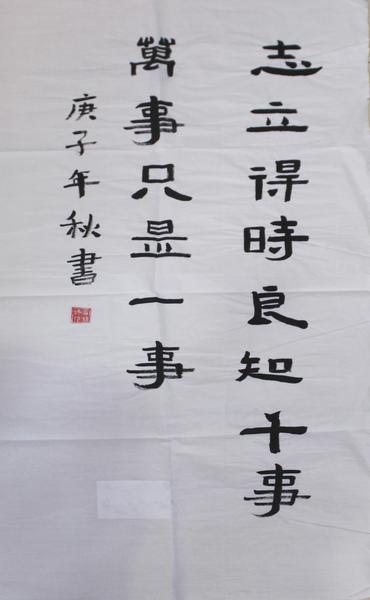 志立得時良知千事
萬事只是一事
庚子年秋書